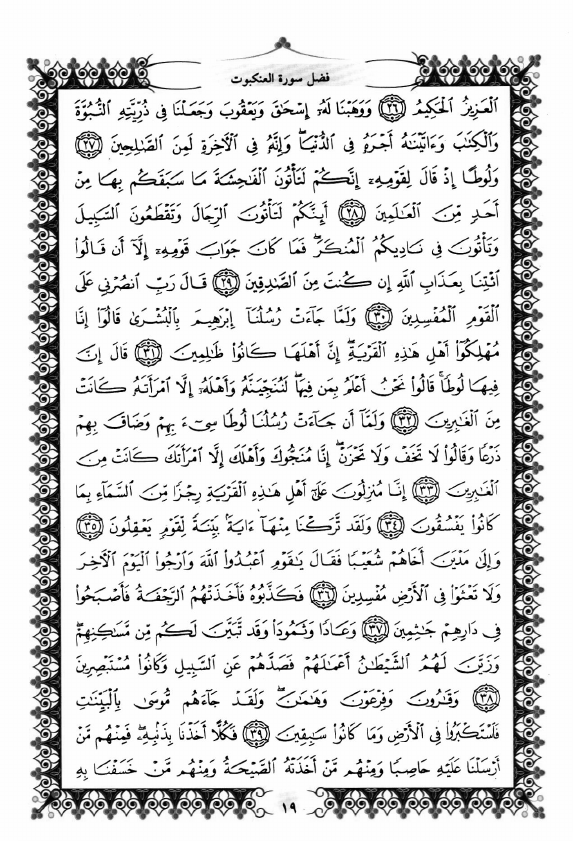 فضل سورة العنكبوت
ٱلْعَزِيزُ ٱلْحَكِيمُ ﴿٢٦﴾ وَوَهَبْنَا لَهُۥٓ إِسْحَٰقَ وَيَعْقُوبَ وَجَعَلْنَا فِى ذُرِّيَّتِهِ ٱلنُّبُوَّةَ
وَٱلْكِتَٰبَ وَءَاتَيْنَٰهُ أَجْرَهُۥ فِى ٱلدُّنْيَا ۖ وَإِنَّهُۥ فِى ٱلْءَاخِرَةِ لَمِنَ ٱلصَّٰلِحِينَ ﴿٢٧﴾
وَلُوطًا إِذْ قَالَ لِقَوْمِهِۦٓ إِنَّكُمْ لَتَأْتُونَ ٱلْفَٰحِشَةَ مَا سَبَقَكُم بِهَا مِنْ
أَحَدٍ مِّنَ ٱلْعَٰلَمِينَ ﴿٢٨﴾ أَئِنَّكُمْ لَتَأْتُونَ ٱلرِّجَالَ وَتَقْطَعُونَ ٱلسَّبِيلَ
وَتَأْتُونَ فِى نَادِيكُمُ ٱلْمُنكَرَ ۖ فَمَا كَانَ جَوَابَ قَوْمِهِۦٓ إِلَّآ أَن قَالُوا۟
ٱئْتِنَا بِعَذَابِ ٱللَّهِ إِن كُنتَ مِنَ ٱلصَّٰدِقِينَ ﴿٢٩﴾ قَالَ رَبِّ ٱنصُرْنِى عَلَى
ٱلْقَوْمِ ٱلْمُفْسِدِينَ ﴿٣٠﴾ وَلَمَّا جَآءَتْ رُسُلُنَآ إِبْرَٰهِيمَ بِٱلْبُشْرَىٰ قَالُوٓا۟ إِنَّا
مُهْلِكُوٓا۟ أَهْلِ هَٰذِهِ ٱلْقَرْيَةِ ۖ إِنَّ أَهْلَهَا كَانُوا۟ ظَٰلِمِينَ ﴿٣١﴾ قَالَ إِنَّ
فِيهَا لُوطًا ۚ قَالُوا۟ نَحْنُ أَعْلَمُ بِمَن فِيهَا ۖ لَنُنَجِّيَنَّهُۥ وَأَهْلَهُۥٓ إِلَّا ٱمْرَأَتَهُۥ كَانَتْ
مِنَ ٱلْغَٰبِرِينَ ﴿٣٢﴾ وَلَمَّآ أَن جَآءَتْ رُسُلُنَا لُوطًا سِىٓءَ بِهِمْ وَضَاقَ بِهِمْ
ذَرْعًا وَقَالُوا۟ لَا تَخَفْ وَلَا تَحْزَنْ ۖ إِنَّا مُنَجُّوكَ وَأَهْلَكَ إِلَّا ٱمْرَأَتَكَ كَانَتْ مِنَ
ٱلْغَٰبِرِينَ ﴿٣٣﴾ إِنَّا مُنزِلُونَ عَلَىٰٓ أَهْلِ هَٰذِهِ ٱلْقَرْيَةِ رِجْزًا مِّنَ ٱلسَّمَآءِ بِمَا
كَانُوا۟ يَفْسُقُونَ ﴿٣٤﴾ وَلَقَد تَّرَكْنَا مِنْهَآ ءَايَةًۢ بَيِّنَةً لِّقَوْمٍ يَعْقِلُونَ ﴿٣٥﴾
وَإِلَىٰ مَدْيَنَ أَخَاهُمْ شُعَيْبًا فَقَالَ يَٰقَوْمِ ٱعْبُدُوا۟ ٱللَّهَ وَٱرْجُوا۟ ٱلْيَوْمَ ٱلْءَاخِرَ
وَلَا تَعْثَوْا۟ فِى ٱلْأَرْضِ مُفْسِدِينَ ﴿٣٦﴾ فَكَذَّبُوهُ فَأَخَذَتْهُمُ ٱلرَّجْفَةُ فَأَصْبَحُوا۟
فِى دَارِهِمْ جَٰثِمِينَ ﴿٣٧﴾ وَعَادًا وَثَمُودَا۟ وَقَد تَّبَيَّنَ لَكُم مِّن مَّسَٰكِنِهِمْ ۖ
وَزَيَّنَ لَهُمُ ٱلشَّيْطَٰنُ أَعْمَٰلَهُمْ فَصَدَّهُمْ عَنِ ٱلسَّبِيلِ وَكَانُوا۟ مُسْتَبْصِرِينَ
﴿٣٨﴾ وَقَٰرُونَ وَفِرْعَوْنَ وَهَٰمَٰنَ ۖ وَلَقَدْ جَآءَهُم مُّوسَىٰ بِٱلْبَيِّنَٰتِ
فَٱسْتَكْبَرُوا۟ فِى ٱلْأَرْضِ وَمَا كَانُوا۟ سَٰبِقِينَ ﴿٣٩﴾ فَكُلًّا أَخَذْنَا بِذَنۢبِهِۦ ۖ فَمِنْهُم مَّنْ
أَرْسَلْنَا عَلَيْهِ حَاصِبًا وَمِنْهُم مَّنْ أَخَذَتْهُ ٱلصَّيْحَةُ وَمِنْهُم مَّنْ خَسَفْنَا بِهِ
١٩